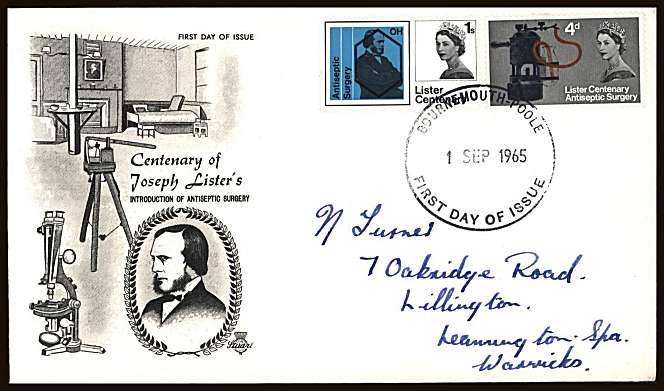 FIRST DAY OF ISSUE
Centenary of
Joseph Lister's
INTRODUCTION OF ANTISEPTIC SURGERY
Stuart
Antiseptic
Surgery
OH
1s
Lister
Centenary
4d
Lister Centenary
Antiseptic Surgery
BOURNEMOUTH-POOLE
1 SEP 1965
FIRST DAY OF ISSUE
N Turner
7 Oakridge Road.
Lillington.
Leamington-Spa.
Warwicks.